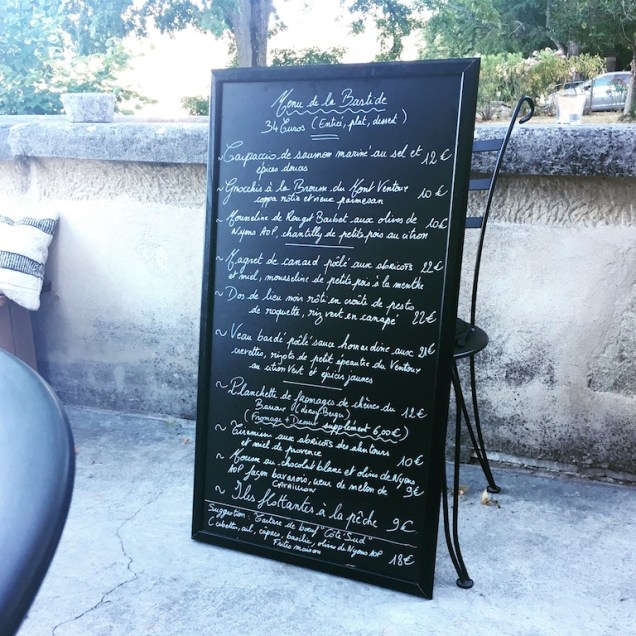 Menu de la Bastide
34 Euros (Entrée, plat, dessert)
~ Carpaccio de saumon mariné au sel et 12 €
épices douces
~ Gnocchis à la Brousse du Mont Ventoux 10 €
coppa rôtie et vieux parmesan
~ Mousseline de Rouget Barbet aux olives de 10 €
Nyons AOP, chantilly de petits pois au citron
~ Magret de canard poêlé aux abricots 22 €
et miel, mousseline de petits pois à la menthe
~ Dos de lieu noir rôti en croûte de pesto
de roquette, riz vert en canapé 22 €
~ Veau bardé poêlé sauce homardine aux
crevettes, risotto de petit épeautre du Ventoux
au citron vert et épices jaunes
~ Planchette de fromages de chèvre du 12 €
(Fromage + Dessert supplément 6,00 €)
~ Tiramisu aux abricots des alentours 10 €
et miel de provence
~ Mousse au chocolat blanc et olives de Nyons
AOP façon bavarois, cœur de melon de 9 €
CAVAILLON
~ Iles flottantes à la pêche 9 €
Suggestion : Tartare de bœuf "Côté Sud"
(ciboulette, ail, câpres, basilic, olives de Nyons AOP
Frites maison 18 €